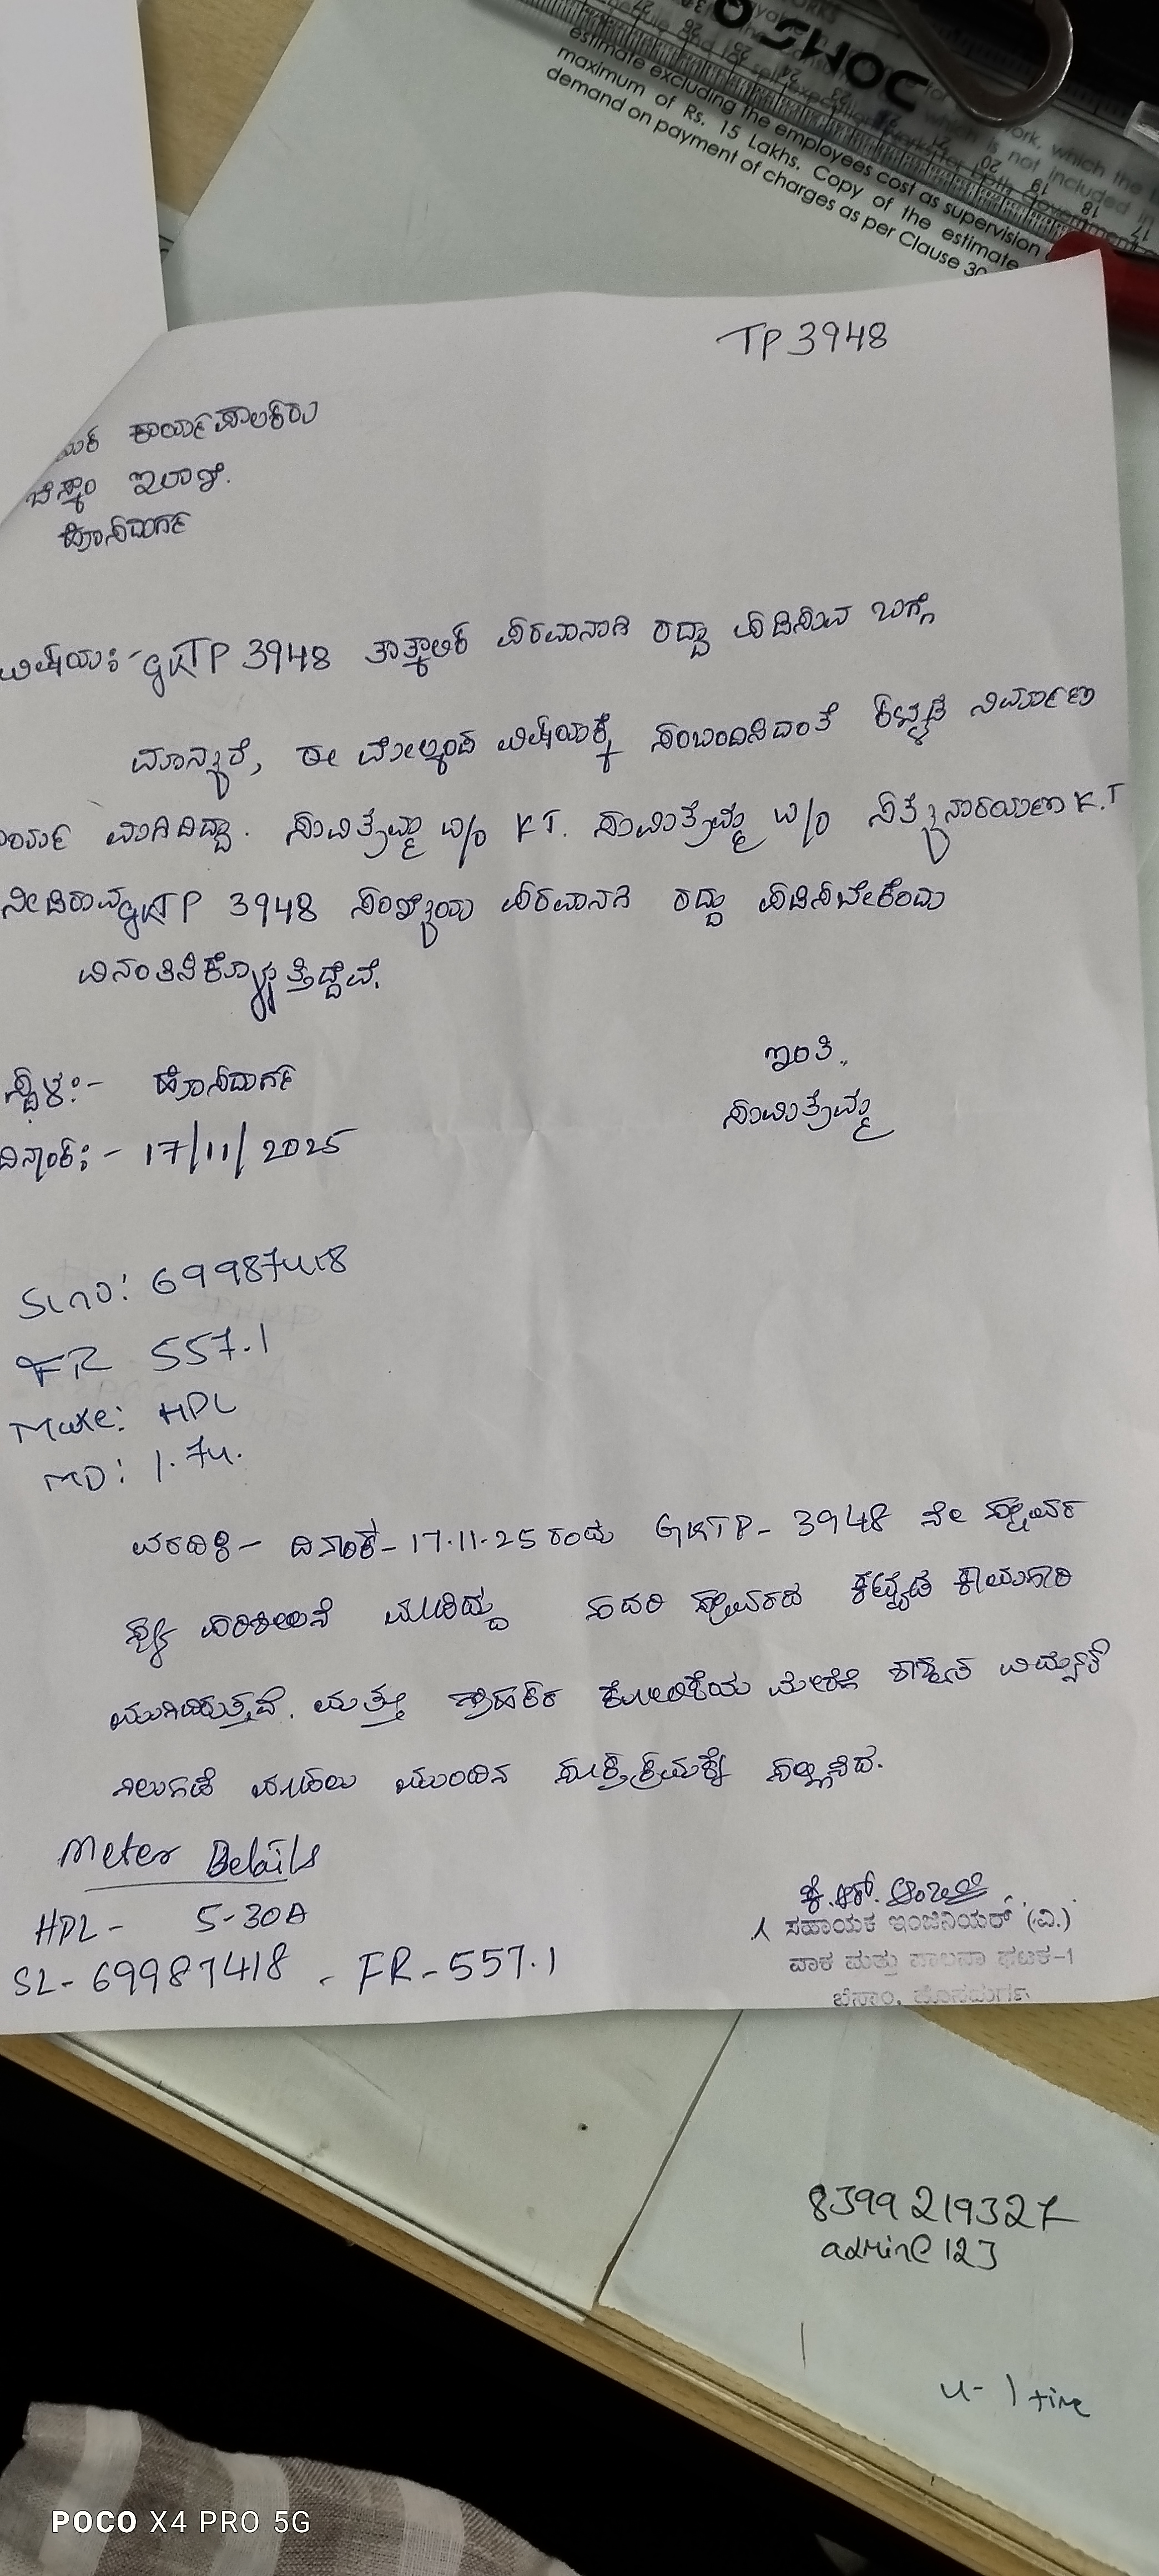 DOMSO
estimate excluding the employees cost as supervision
maximum of Rs. 15 Lakhs. Copy of the estimate
demand on payment of charges as per Clause 30
TP 3948
ಕಾರ್ಯಪಾಲಕರು
ಬೆಸ್ಕಾಂ ಇಲಾಖೆ.
ಹೊಸದುರ್ಗ
ವಿಷಯ:- GKTP 3948 ತಾತ್ಕಾಲಿಕ ಪರವಾನಾಗಿ ರದ್ದು ಪಡಿಸುವ ಬಗ್ಗೆ
ಮಾನ್ಯರೆ, ಈ ಮೇಲ್ಕಂಡ ವಿಷಯಕ್ಕೆ ಸಂಬಂದಿಸಿದಂತೆ ಕಟ್ಟಡ ನಿರ್ಮಾಣ
ಸಾವಿತ್ರಮ್ಮ w/o K T. ಸಾವಿತ್ರಮ್ಮ w/o ಸತ್ಯನಾರಾಯಣ K.T
ನೀಡಿರುವ GKTP 3948 ಸಂಖ್ಯೆಯ ಪರವಾನಗಿ ರದ್ದು ಪಡಿಸಬೇಕೆಂದು
ವಿನಂತಿಸಿಕೊಳ್ಳುತ್ತಿದ್ದೆವೆ.
ಇಂತಿ,
ಸಾವಿತ್ರಮ್ಮ
ಸ್ಥಳ:- ಹೊಸದುರ್ಗ
ದಿನಾಂಕ:- 17/11/2025
SLNO: 69987418
FR 557.1
Make: HPL
MD: 1.74.
ವರದಿ:- ದಿನಾಂಕ- 17.11.25 ರಂದು GKTP- 3948 ನೇ ಸ್ಥಾವರ
ಸ್ಥಳ ಪರಿಶೀಲನೆ ಮಾಡಿದ್ದು ಸದರಿ ಸ್ಥಾವರದ ಕಟ್ಟಡ ಕಾಮಗಾರಿ
ಮುಗಿದಿರುತ್ತದೆ. ಮತ್ತು ಗ್ರಾಹಕರ ಕೋರಿಕೆಯ ಮೇರೆಗೆ ಶಾಶ್ವತ ವಿದ್ಯುತ್
ನಿಲುಗಡೆ ಮಾಡಲು ಮುಂದಿನ ಸೂಕ್ತ ಕ್ರಮಕ್ಕೆ ಸಲ್ಲಿಸಿದೆ.
Meter Details
HPL - 5-30A
SL- 69987418 - FR- 557.1
ಸಹಾಯಕ ಇಂಜಿನಿಯರ್ (ವಿ.)
ಮತ್ತು ಪಾಲನಾ ಘಟಕ-1
ಬೆಸಾಂ, ಹೊಸದುರ್ಗ
8399219327
admin@123
u- 1 time
POCO X4 PRO 5G